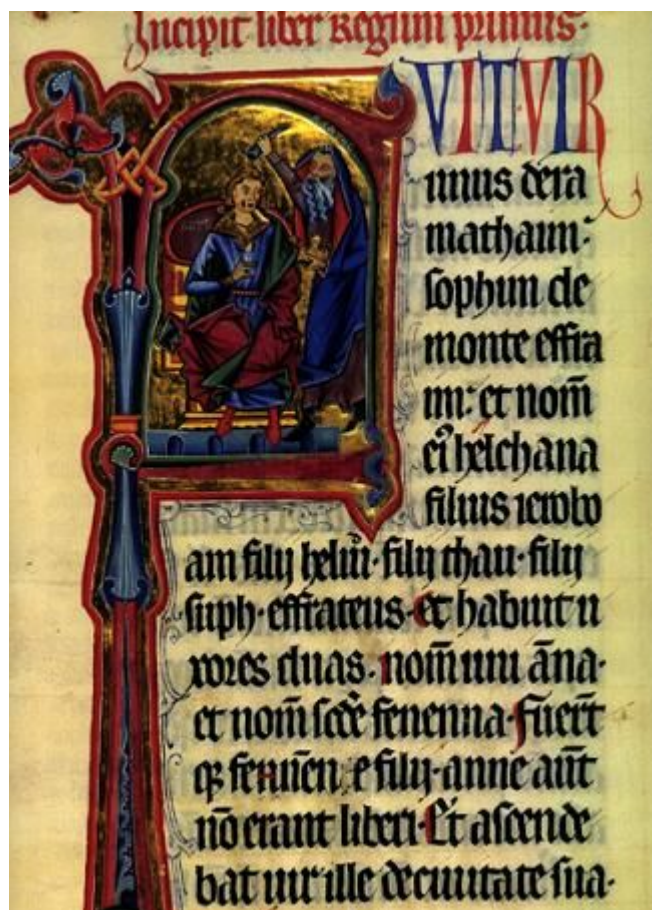 Incipit liber Regum primus·
VIT VIR
unus de ra
mathaim·
sophim de
monte effra
im: et nom̄
ei᷒ helchana
filius ierobo
am filij heliu· filij thau· filij
suph· effrateus· et habuit u
xores duas· nom̄ uni āna·
et nom̄ fenenna· Fuer̄t
filij· anne aūt
nō erant liberi· Et ascende
bat uir ille de ciuitate sua·